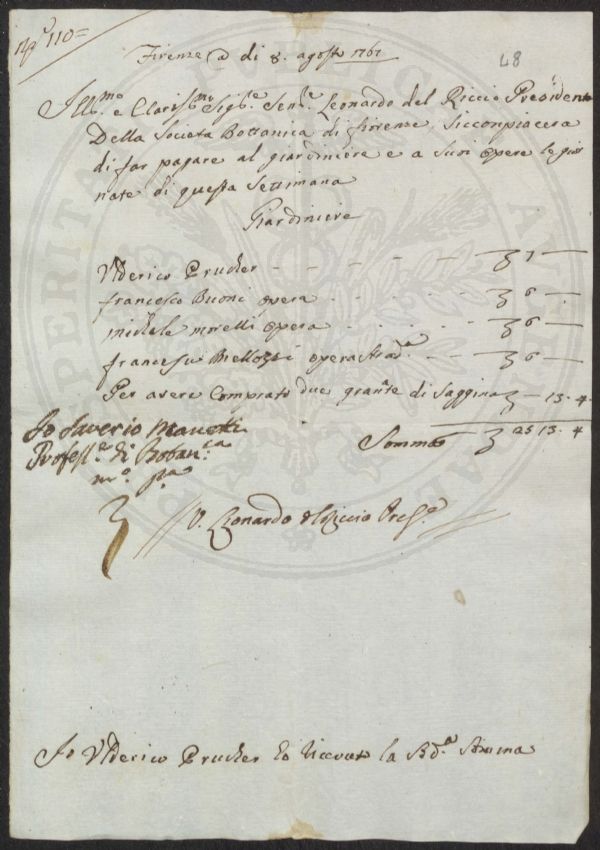 N.º 110=
48
Firenze a di 8. agosto 1767
Ill.mo e Claris.mo Sig.re Sen.re Leonardo del Riccio Presidente
Della Societa Bottanica di fiorenze, Siccompiacera
di far pagare al giardiniere e a suoi opere le gior
nate di questa Settimana
Giardiniere
Vlderico Prucker - - - - - - 7 —
francesco Buoni opera . . . . . 6 —
michele morelli opera . . . . 6 —
francesco opera Strad.a - - 6 —
Per avere Comprato due granate di Saggina — 13. 4
Somma 25 13. 4
Io Saverio Manetti
Profess.re di Botan.ca
m.o p.a
V. Lionardo del Riccio Pres.e
Io Vlderico Prucker ho riceuto la Sud.a Somma
PERITA PUBLICA